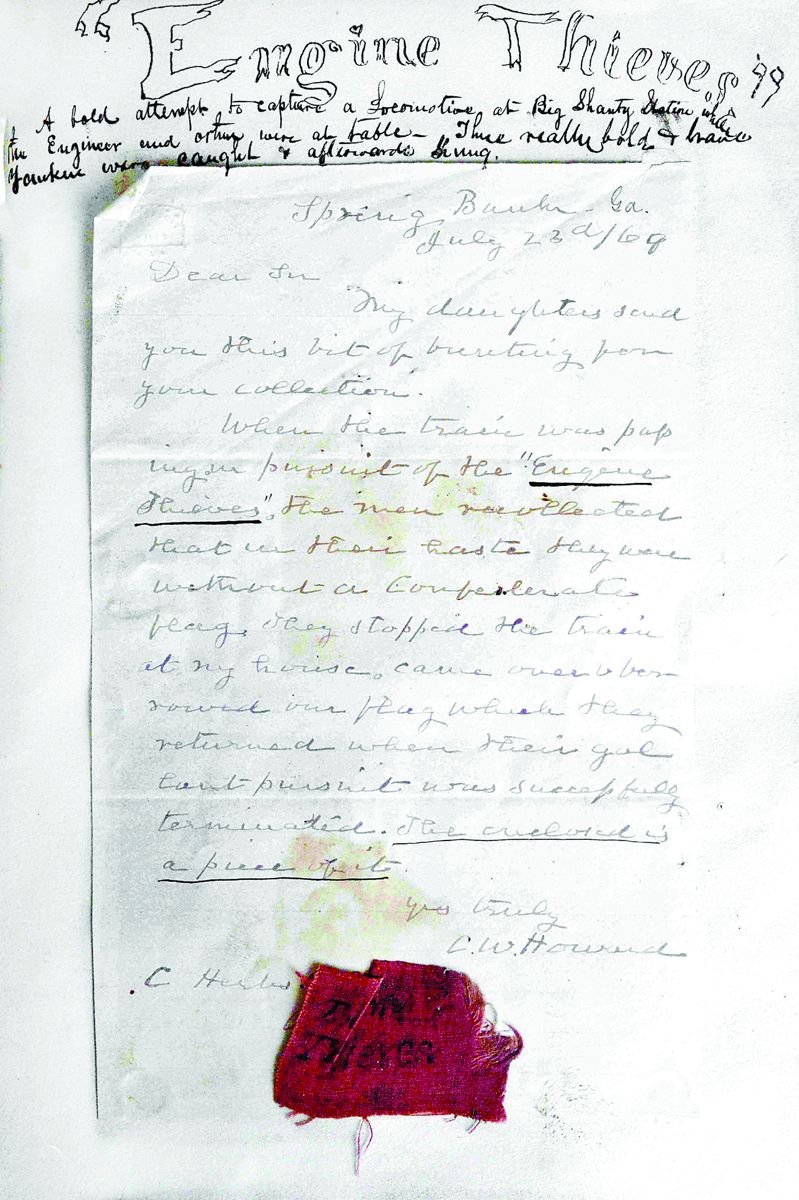 "Engine Thieves"
A bold attempt to capture a Locomotive at Big Shanty Station while
the Engineer and others were at table — These really bold & brave
Yankees were caught & afterwards hung.
Spring Bank - Ga.
July 23d/69
Dear Sir
My daughters send
you this bit of bunting for
your collection.
When the train was pass
ing in pursuit of the "Engine
Thieves", the men recollected
that in their haste they were
without a Confederate
flag. They stopped the train
at my house, came over & bor
rowed our flag which they
returned when their gal
lant pursuit was successfully
terminated. The enclosed is
a piece of it.
yrs truly
C. W. Howard
C
Thieves